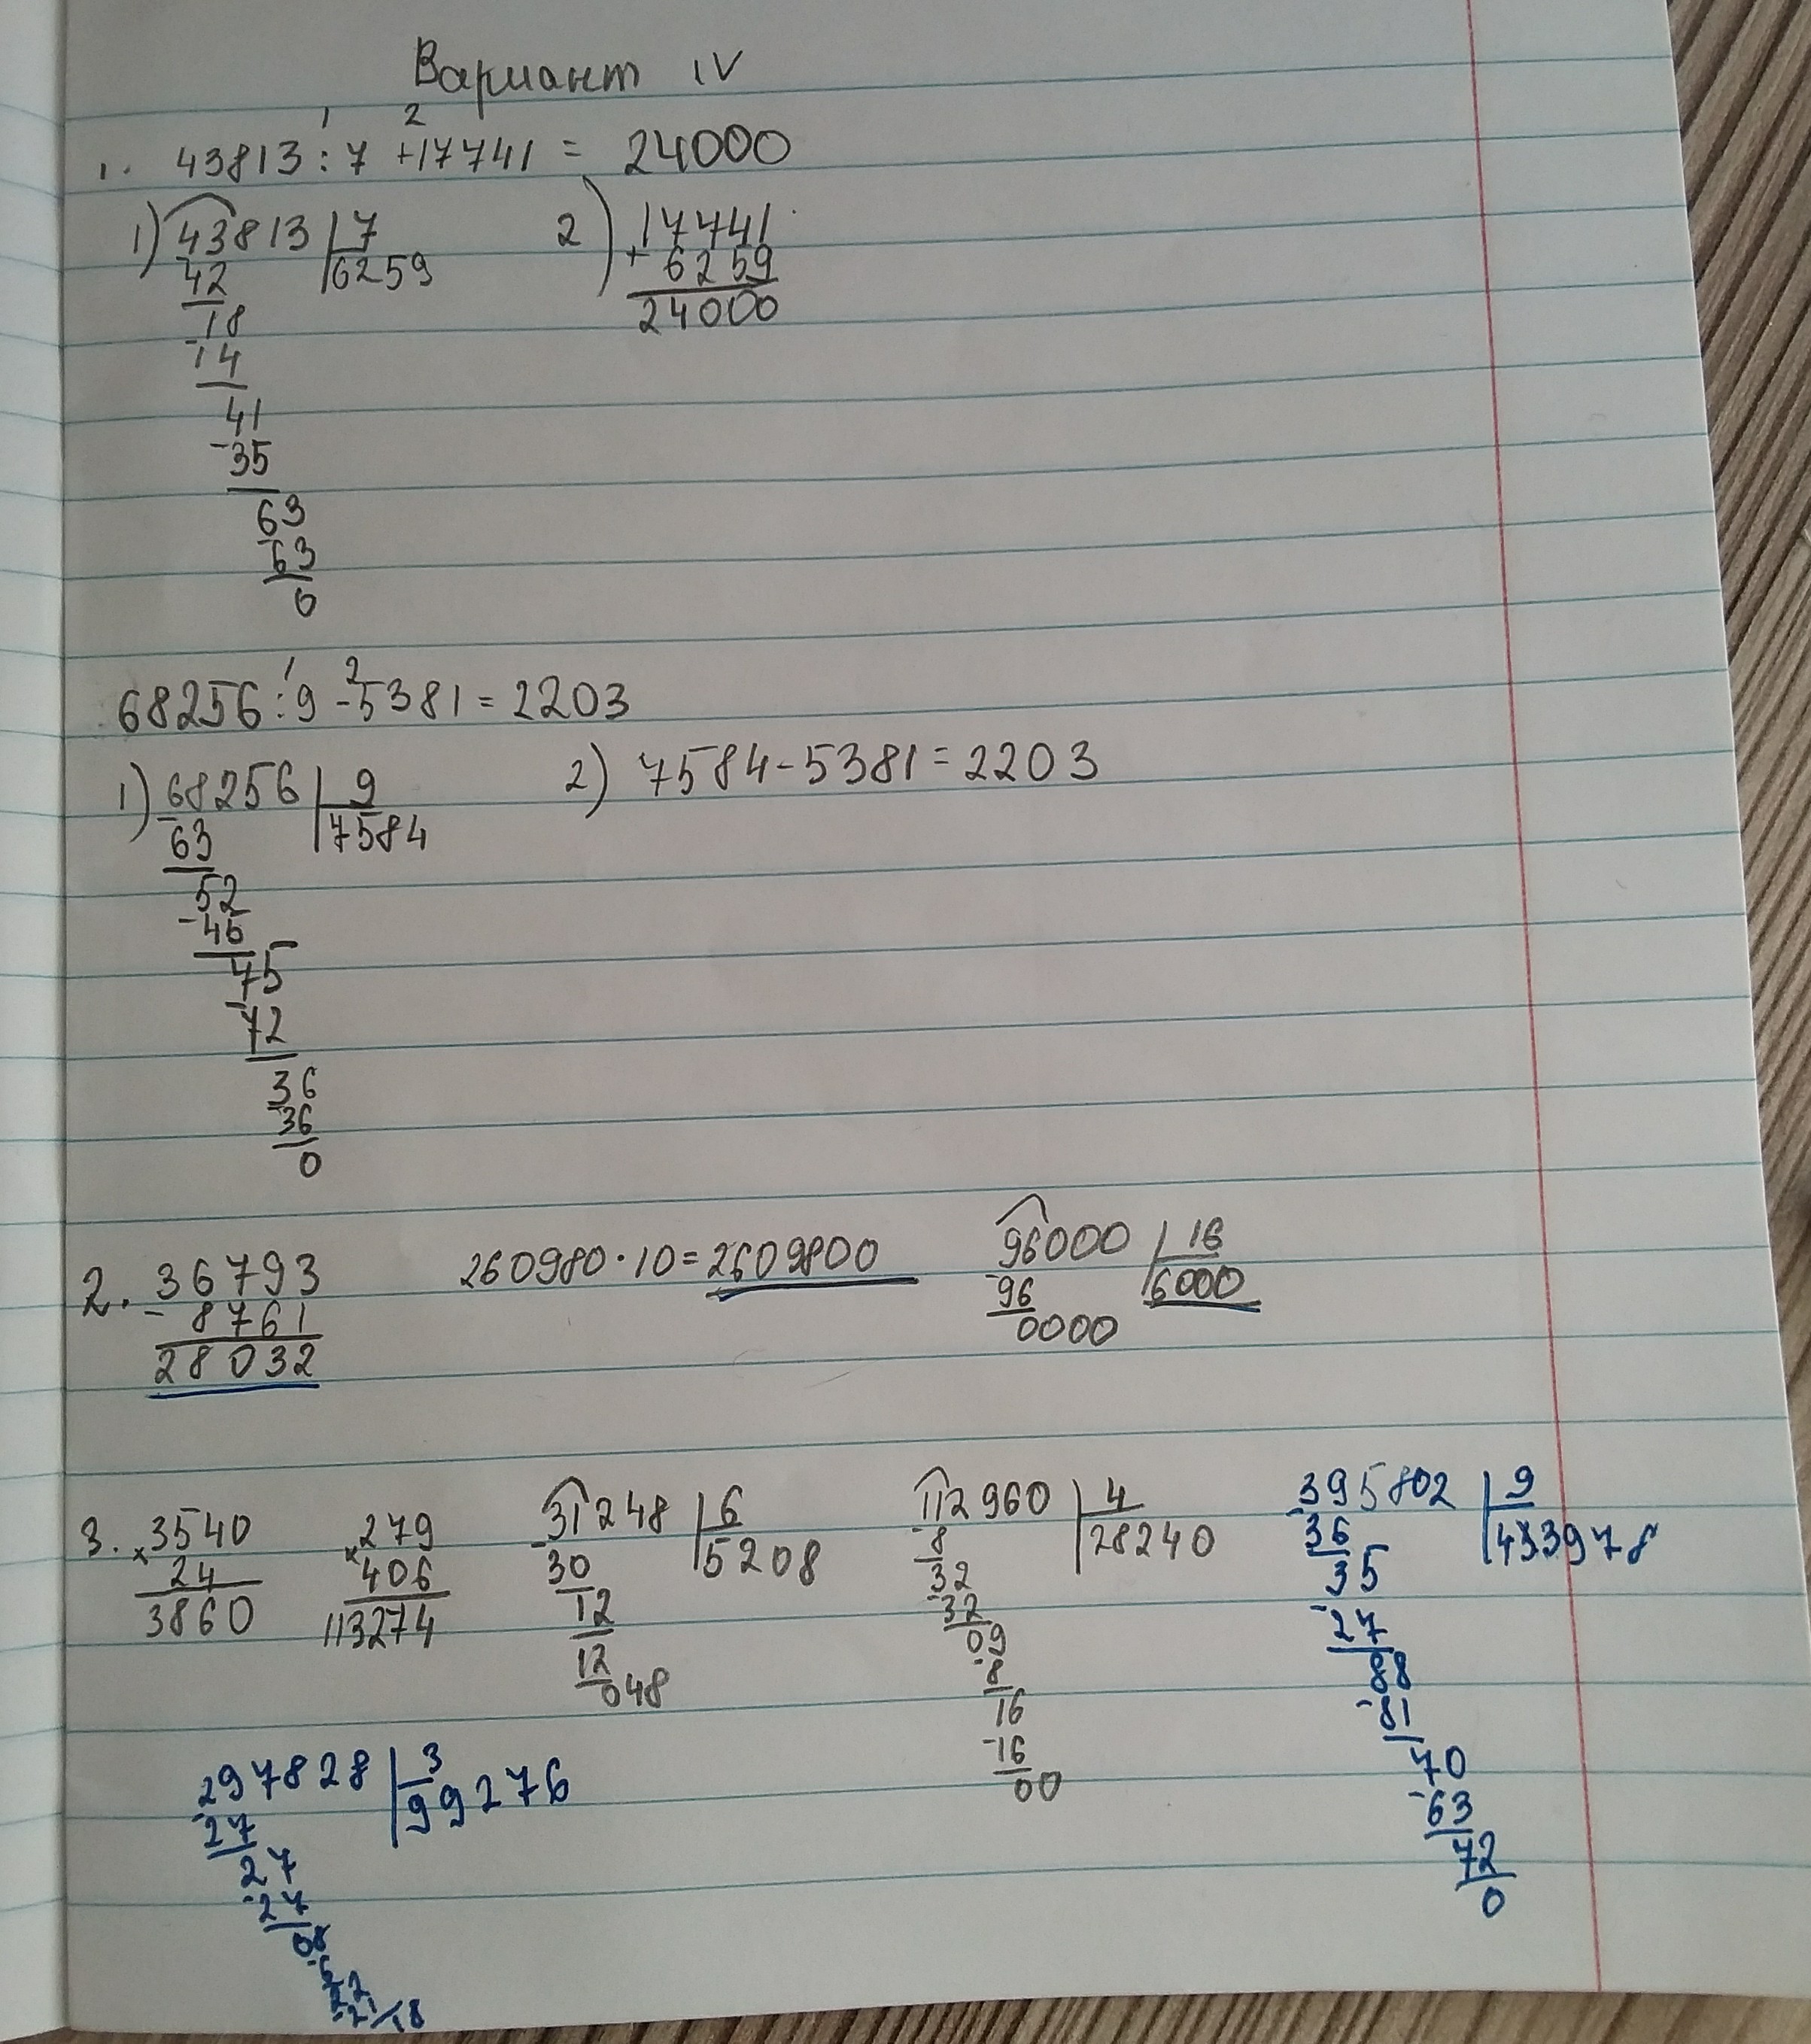 Вариант IV
1 2
1. 43813 : 7 + 17741 = 24000
1) 43813 | 7 2) 17741
42 6259 + 6259
18 24000
- 14
41
- 35
63
- 63
0
1 2
68256 : 9 - 5381 = 2203
1) 68256 | 9 2) 7584 - 5381 = 2203
- 63 7584
52
- 45
75
- 72
36
- 36
0
2. 36793 260980 · 10 = 2609800 96000 | 16
- 8761 - 96 6000
28032 0000
3. 3540 279 31248 | 6 112960 | 4 395802 | 9
× 24 × 406 - 30 5208 - 8 28240 - 36 433978
3860 113274 12 32 35
12 - 32 - 27
048 09 88
- 8 - 81
16 70
- 16 - 63
00 72
0
297828 | 3
- 27 99276
27
- 27
08
- 6
22
- 21
18